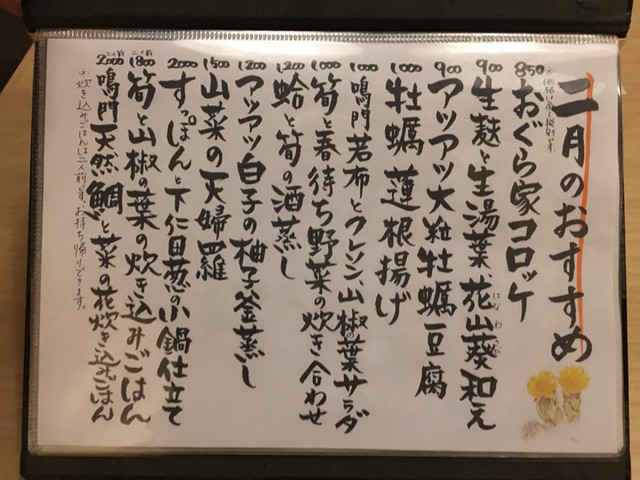 二月のおすすめ
850 おぐら家コロッケ
900 生麩と生湯葉、花山葵和え
はなわさび
900 アツアツ大粒牡蠣豆腐
1000 牡蠣蓮根揚げ
1000 鳴門若布とクレソン、山椒の葉サラダ
1000 筍と春待ち野菜の炊き合わせ
1200 蛤と筍の酒蒸し
1200 アツアツ白子の柚子釜蒸し
1500 山菜の天婦羅
2000 すっぽんと下仁田葱の小鍋仕立て
二人前 1800 筍と山椒の葉の炊き込みごはん
二人前 2000 鳴門天然鯛と菜の花炊き込みごはん
※炊き込みごはんは二人前〜です。お持ち帰りできます。